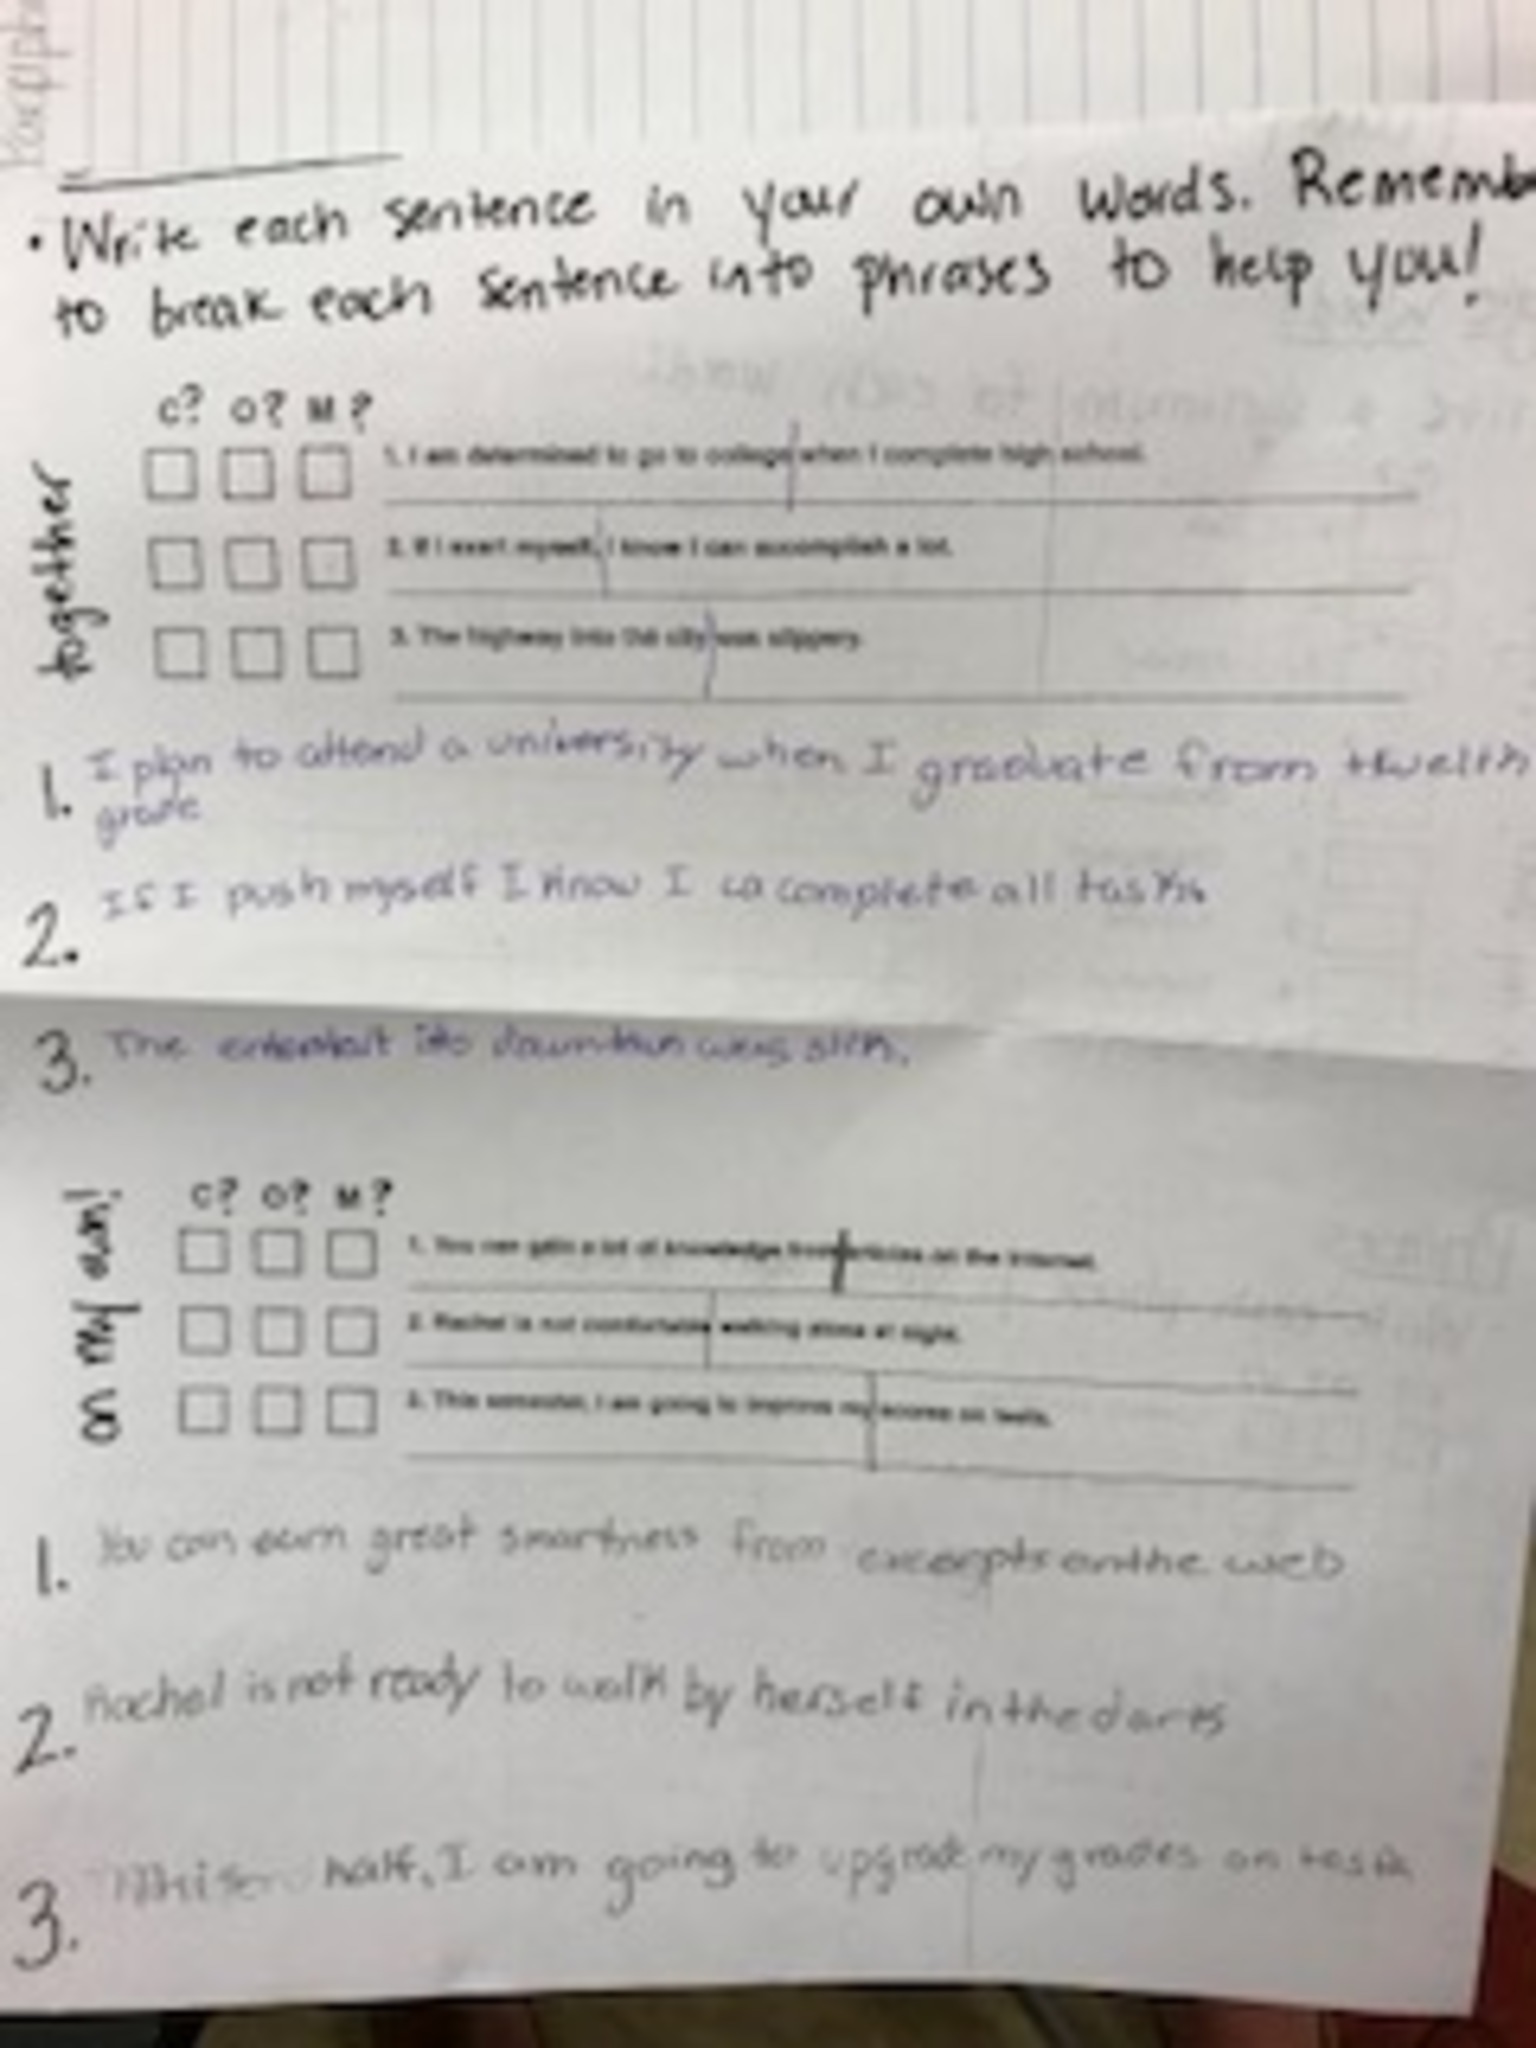 • Write each sentence in your own words. Rememb
to break each sentence into phrases to help you!
C? O? M?
together
1. I am determined to go to college when I complete high school.
2. If I exert myself, I know I can accomplish a lot.
3. The highway into the city was slippery.
1. I plan to attend a university when I graduate from
grade
2. If I push myself I know I ca complete all tasks
3. The into downtown was slick.
on my own!
C? O? M?
1. You can gain a lot of knowledge from articles on the internet.
2. Rachel is not comfortable walking alone at night.
3. This semester, I am going to improve my scores on tests.
1. You can earn great smartness from excerpts on the web
2. Rachel is not ready to walk by herself in the dark
3. half, I am going to upgrade my grades on tests